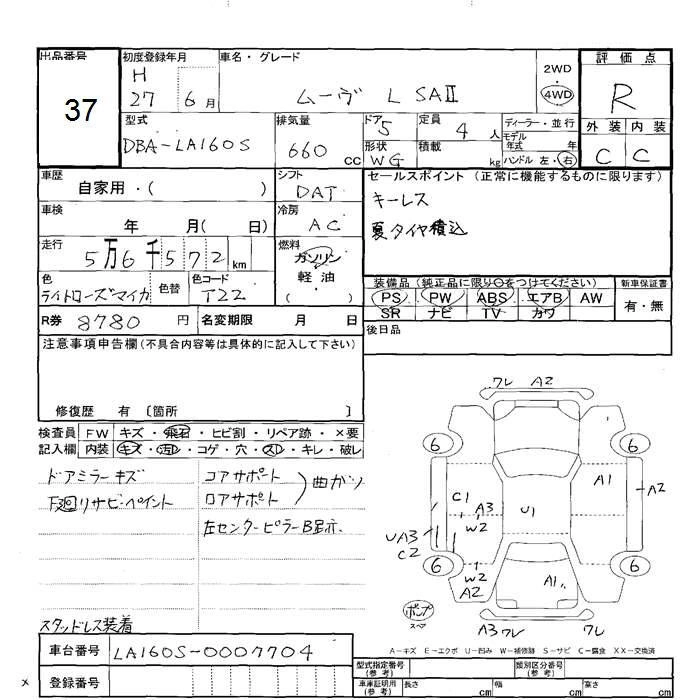 出品番号 初度登録年月 車名・グレード 2WD 評価点
37 H 27 6月 ムーヴ L SAⅡ 4WD R
型式 排気量 ドア 定員 ディーラー・並行 外装 内装
DBA-LA160S 660cc 5 4人 モデル年式 年 C C
形状 WG 積載 kg ハンドル 左・右
車歴 自家用・( ) シフト DAT セールスポイント (正常に機能するものに限ります)
車検 年 月( 日) 冷房 AC キーレス
夏タイヤ積込
走行 5万6千572km 燃料 ガソリン 軽油 ( )
色 ライトローズマイカ 色替 色コード T22
装備品 (純正品に限り○をつけてください) 新車保証書
PS PW ABS エアB AW 有・無
SR ナビ TV カワ
R券 8780円 名変期限 月 日 後日品
注意事項申告欄(不具合内容等は具体的に記入して下さい)
修復歴 有 〔箇所 〕
検査員 FW キズ・飛石・ヒビ割・リペア跡・×要
記入欄 内装 キズ・汚レ・コゲ・穴・スレ・キレ・破レ
ドアミラーキズ コアサポート 曲がり
下廻リサビ・ペイント ロアサポート
左センターピラーB显示.
スタッドレス装着
ワレ A2
6 6
C1 A3 W2 U1 A1 A2
UA3 C2
6 6
W2 A2 A1
ポンプ スペア
A3ワレ ワレ
A-キズ E-エクボ U-凹み W-補修跡 S-サビ C-腐食 XX-交換済
車台番号 LA160S-0007704
登録番号
型式指定番号(参考) 類別区分番号(参考)
車庫証明用(参考) 長さ cm 幅 cm 高さ cm
x